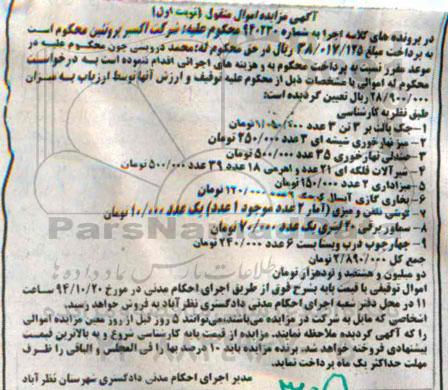 آگهی مزایده اموال منقول (نوبت اول)
در پرونده های کلاسه اجرا به شماره ۹۴۰۲۳۰ محکوم علیه: شرکت اکسیر پروتئین محکوم است
به پرداخت مبلغ ۳۸/۰۱۷/۱۲۵ ریال در حق محکوم له: محمد درویشی چون محکوم علیه در
موعد مقرر نسبت به پرداخت محکوم به و هزینه های اجرائی اقدام ننموده است به درخواست
محکوم له اموالی با مشخصات ذیل از محکوم علیه توقیف و ارزش آنها توسط ارزیاب به میزان
۲۸/۹۰۰/۰۰۰ ریال تعیین گردیده است:
طبق نظریه کارشناسی
۱-جک پالت بر ۳ تن ۳ عدد تومان
۲-میز نهارخوری شیشه ای ۳ عدد ۲۵۰/۰۰۰ تومان
۳-صندلی نهارخوری ۳۵ عدد ۵۰۰/۰۰۰ تومان
۴-شیرآلات فلکه ای ۲۱ عدد و اهرمی ۱۸ عدد ۳۹ عدد ۵۰۰/۰۰۰ تومان
۵-میز اداری ۲ عدد ۱۵۰/۰۰۰ تومان
۶-بخاری گازی آبسال ۱۲۰/۰۰۰ تومان
۷-گوشی تلفن و میزی (آمار ۲ عدد موجود ۱ عدد) یک عدد ۱۰/۰۰۰ تومان
۸-سماور برقی ۲۰ لیتری یک عدد ۷۰/۰۰۰ تومان
۹-چهارچوب درب ویستا بست ۶ عدد ۲۴۰/۰۰۰ تومان
جمع کل ۲/۸۹۰/۰۰۰ تومان
دو میلیون و هشتصد و نود هزار تومان
اموال توقیفی با قیمت پایه بشرح فوق از طریق اجرای احکام مدنی در مورخ ۹۴/۱۰/۲۰ ساعت
۱۱ در محل دفتر شعبه اجرای احکام مدنی دادگستری نظرآباد به فروش خواهد رسید.
اشخاصی که مایل به شرکت در مزایده می باشند،می توانند ۵ روز قبل از روز معین مزایده اموالی
را که آگهی گردیده ملاحظه نمایند. مزایده از قیمت پایه کارشناسی شروع و به بالاترین قیمت
پیشنهادی فروخته خواهد شد. برنده مزایده باید ۱۰ درصد بها را فی المجلس و الباقی را ظرف
مهلت حداکثر یک ماه پرداخت نماید.
مدیر اجرای احکام مدنی دادگستری شهرستان نظرآباد